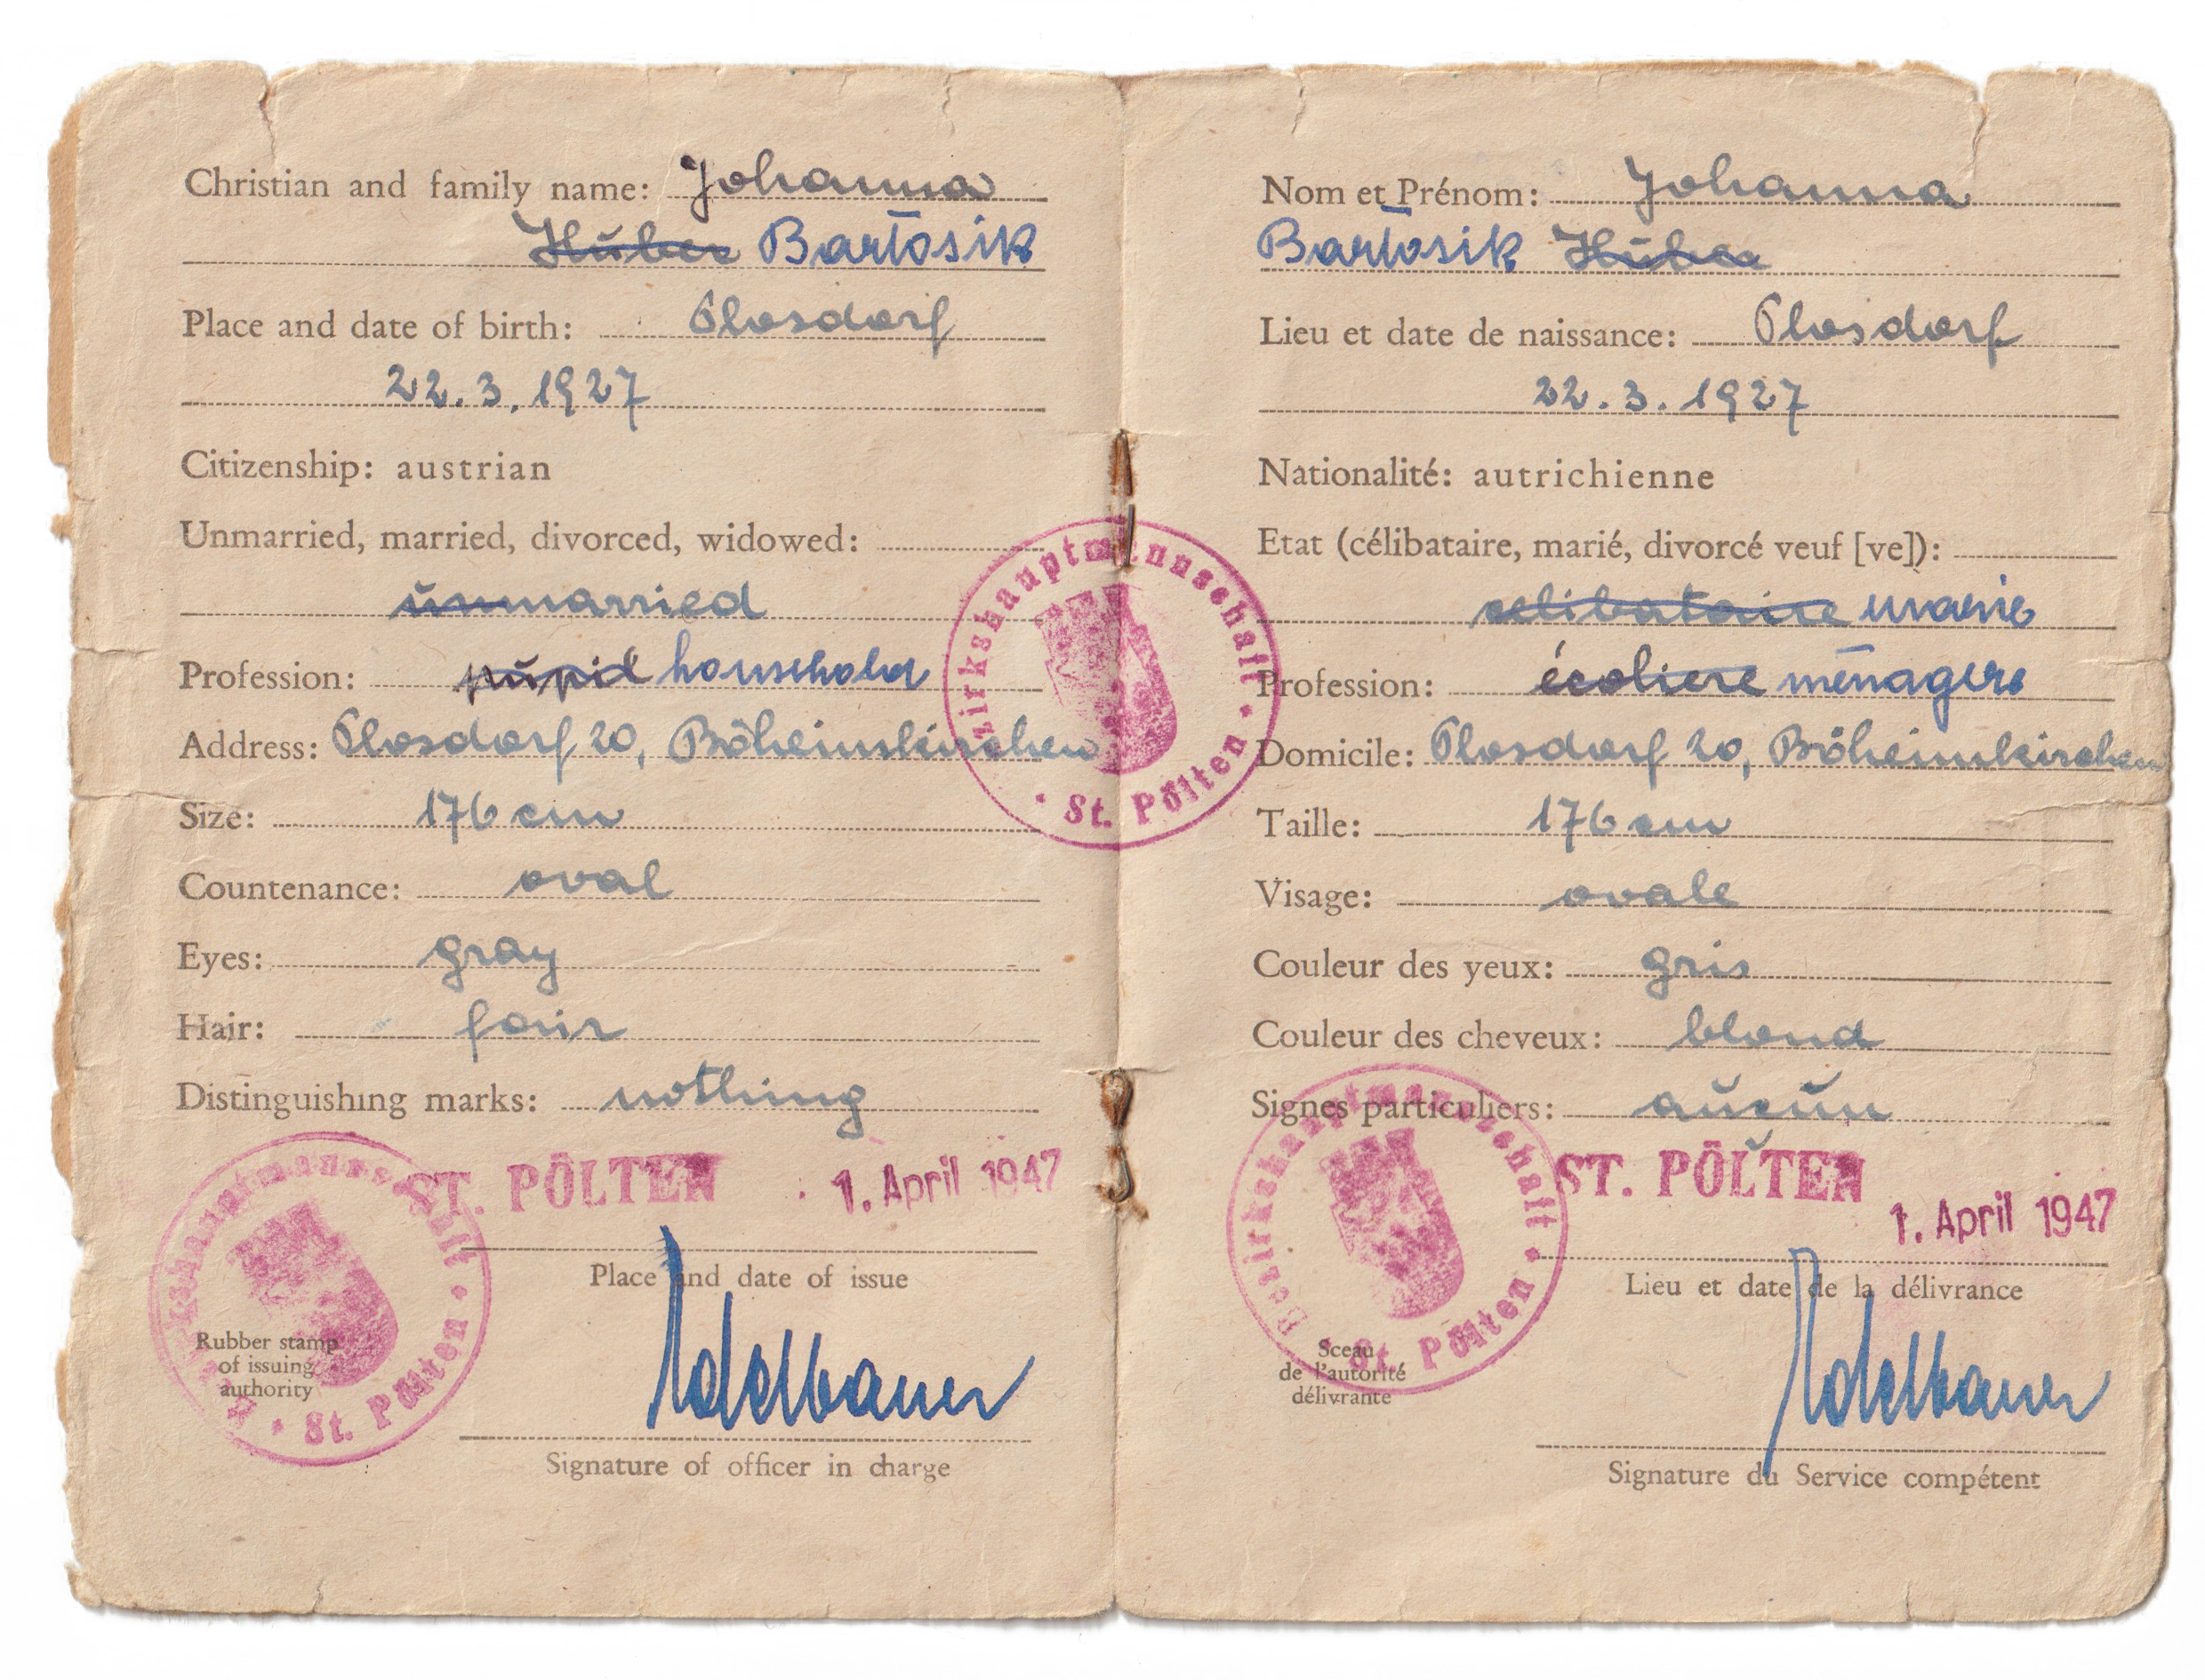 Christian and family name: Johanna
Huber Bartosik
Place and date of birth: Plosdorf
22.3.1927
Citizenship: austrian
Unmarried, married, divorced, widowed:
unmarried
Profession: pupil household
Address: Plosdorf 20, Böheimkirchen
Size: 176 cm
Countenance: oval
Eyes: gray
Hair: fair
Distinguishing marks: nothing
ST. PÖLTEN 1. April 1947
Place and date of issue
Rubber stamp
of issuing
authority
Bezirkshauptmannschaft
St. Pölten
Signature of officer in charge
Bezirkshauptmannschaft
St. Pölten
Nom et Prénom: Johanna
Bartosik Huber
Lieu et date de naissance: Plosdorf
22.3.1927
Nationalité: autrichienne
Etat (célibataire, marié, divorcé veuf [ve]):
celibataire marié
Profession: écoliere ménagere
Domicile: Plosdorf 20, Böheimkirchen
Taille: 176 cm
Visage: ovale
Couleur des yeux: gris
Couleur des cheveux: blond
Signes particuliers: aucun
ST. PÖLTEN 1. April 1947
Lieu et date de la délivrance
Bezirkshauptmannschaft
St. Pölten
Sceau
de l'autorité
délivrante
Signature du Service compétent